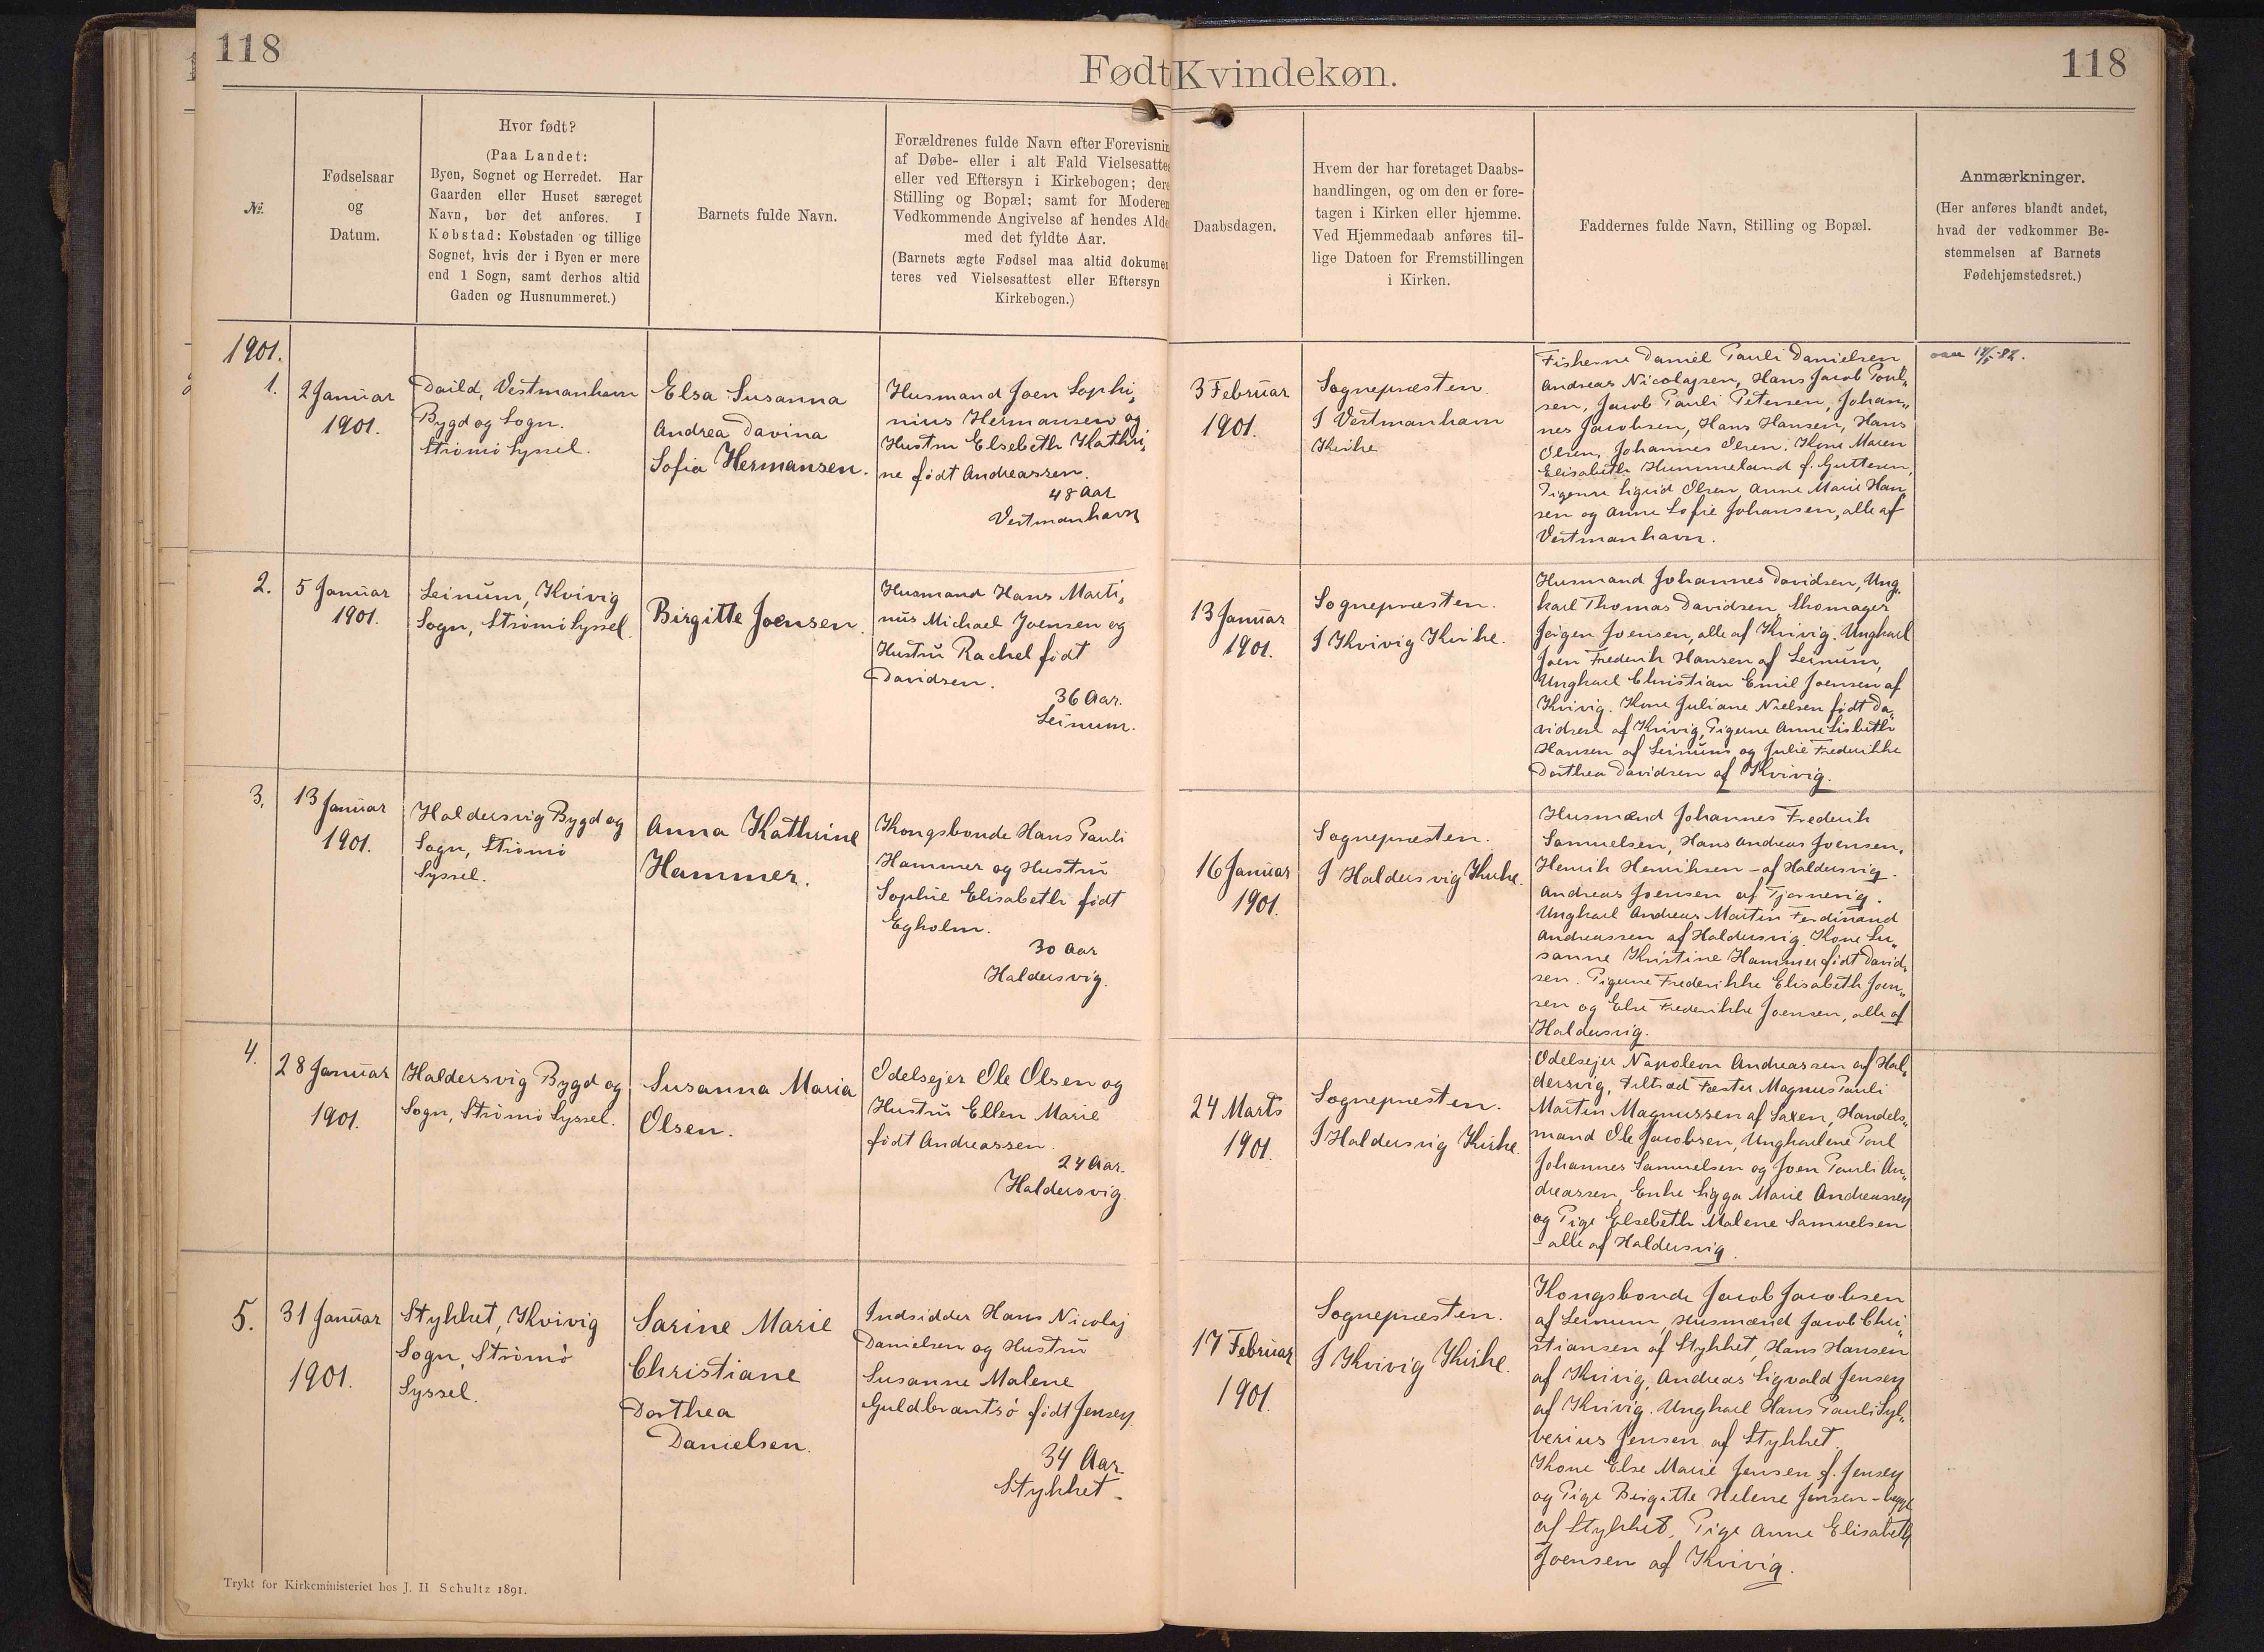 118
Født Kvindekøn.
118
№.
Fødselsaar
og
Datum.
Hvor født?
(Paa Landet:
Byen, Sognet og Herredet. Har
Gaarden eller Huset særeget
Navn, bør det anføres. I
Købstad: Købstaden og tillige
Sognet, hvis der i Byen er mere
end 1 Sogn, samt derhos altid
Gaden og Husnummeret.)
Barnets fulde Navn.
Forældrenes fulde Navn efter Forevisnin
af Døbe- eller i alt Fald Vielsesattes
eller ved Eftersyn i Kirkebogen; dere
Stilling og Bopæl; samt for Moderen
Vedkommende Angivelse af hendes Alde
med det fyldte Aar.
(Barnets ægte Fødsel maa altid dokumen
teres ved Vielsesattest eller Eftersyn
Kirkebogen.)
Daabsdagen.
Hvem der har foretaget Daabs-
handlingen, og om den er fore-
tagen i Kirken eller hjemme.
Ved Hjemmedaab anføres til-
lige Datoen for Fremstillingen
i Kirken.
Faddernes fulde Navn, Stilling og Bopæl.
Anmærkninger.
(Her anføres blandt andet,
hvad der vedkommer Be-
stemmelsen af Barnets
Fødehjemstedsret.)
1901.
1.
2 Januar
1901.
Daild, Vestmanhavn
Bygd og Sogn.
Strømø Syssel.
Elsa Susanna
Andrea Davina
Sofia Hermansen.
Husmand Joen Sophi„
nius Hermansen og
Hustru Elsebeth Kathri„
ne født Andreassen.
48 Aar
Vestmanhavn
3 Februar
1901.
Sognepræsten.
I Vestmanhavn
Kirke
Fiskerne Daniel Pauli Danielsen
Andreas Nicolajsen, Hans Jacob Poul„
sen, Jacob Pauli Petersen, Johan„
nes Jacobsen, Hans Hansen, Hans
Olsen, Johannes Olsen. Kone Maren
Elisabeth Hummeland f. Guttesen,
Pigerne Sigrid Olsen, Anne Marie Han„
sen og Anne Sofie Johansen, alle af
Vestmanhavn.
2.
5 Januar
1901.
Leinum, Kvivig
Sogn, Strømø Syssel.
Birgitte Joensen.
Husmand Hans Marti„
nus Michael Joensen og
Hustru Rachel født
Davidsen.
36 Aar.
Leinum.
13 Januar
1901.
Sognepræsten.
I Kvivig Kirke.
Husmand Johannes Davidsen, Ung„
karl Thomas Davidsen, Skomager
Jørgen Joensen, alle af Kvivig. Ungkarl
Joen Frederik Hansen af Leinum,
Ungkarl Christian Emil Joensen af
Kvivig. Kone Juliane Nielsen født Da„
vidsen af Kvivig, Pigerne Anne Lisbeth
Hansen af Leinum og Julie Frederikke
Dorthea Davidsen af Kvivig.
3.
13 Januar
1901.
Haldersvig Bygd og
Sogn, Strømø
Syssel.
Anna Kathrine
Hammer.
Kongsbonde Hans Pauli
Hammer og Hustru
Sophie Elisabeth født
Egholm.
30 Aar
Haldersvig.
16 Januar
1901.
Sognepræsten.
I Haldersvig Kirke.
Husmænd Johannes Frederik
Samuelsen, Hans Andreas Joensen,
Henrik Henriksen - af Haldersvig.
Andreas Joensen af Tjørnevig.
Ungkarl Andreas Martin Ferdinand
Andreassen af Haldersvig. Kone Su„
sanne Kristine Hammer født David„
sen. Pigerne Frederikke Elisabeth Joen„
sen og Else Frederikke Joensen, alle af
Haldersvig.
4.
28 Januar
1901.
Haldersvig Bygd og
Sogn, Strømø Syssel.
Susanna Maria
Olsen.
Odelsejer Ole Olsen og
Hustru Ellen Marie
født Andreassen.
24 Aar.
Haldersvig.
24 Marts
1901.
Sognepræsten.
I Haldersvig Kirke.
Odelsejer Napoleon Andreassen af Hal„
dersvig, Fæster Magnus Pauli
Martin Magnussen af Saxen, Handels„
mand Ole Jacobsen, Ungkarlene Poul
Johannes Samuelsen og Joen Pauli An„
dreassen, Enke Sigga Marie Andreassen
og Pige Elsebeth Malene Samuelsen
- alle af Haldersvig.
5.
31 Januar
1901.
Stykket, Kvivig
Sogn, Strømø
Syssel.
Sarine Marie
Christiane
Dorthea
Danielsen.
Indsidder Hans Nicolaj
Danielsen og Hustru
Susanne Malene
Guldbrantsø født Jensen
34 Aar.
Stykket.
17 Februar
1901.
Sognepræsten.
I Kvivig Kirke.
Kongsbonde Jacob Jacobsen
af Leinum, Husmænd Jacob Chri„
stiansen af Stykket, Hans Hansen
af Kvivig, Andreas Sigvald Jensen
af Kvivig. Ungkarl Hans Pauli Syl„
verius Jensen af Stykket.
Kone Else Marie Jensen f. Jensen
og Pige Birgitte Helene Jensen - begge
af Stykket, Pige Anne Elisabeth
Joensen af Kvivig.
Trykt for Kirkeministeriet hos J. H Schultz 1891.